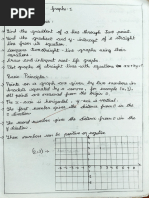 Graphs-2
• Find the gradient of a line through two point
• Find the gradient and y-intercept of a straight
line from its equation.
• Compare two straight-line graphs using their
equations.
• Draw and interpret real-life graph.
• Plot graphs of straight lines with equations
Basic Principles:
• Points on a graph are given by two numbers in
brackets separated by a comma, for example (2,3).
All points are measured from the origin
• The x-axis is horizontal, y-axis is vertical.
• The first number gives the distance from 0 in the
x direction.
• The second number gives the distance from 0 in the
y direction.
• These numbers can be positive or negative.